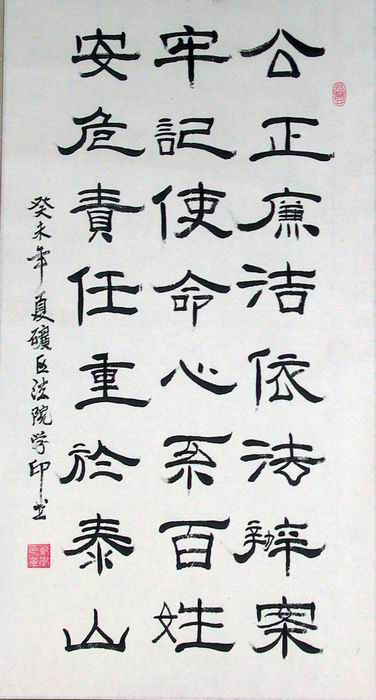 公正廉洁依法辦案
牢記使命心系百姓
安危責任重於泰山
癸未年夏礦区法院学印书